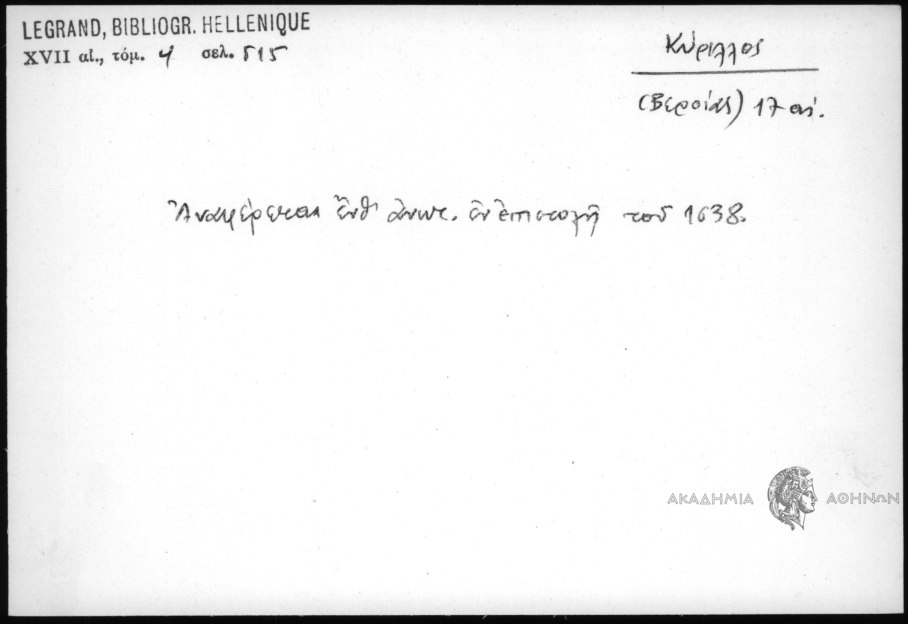 LEGRAND, BIBLIOGR. HELLENIQUE
XVII αἰ., τόμ. 4 σελ. 515
Κύριλλος
(Βεροίας) 17 αἰ.
Ἀναφέρεται ἔνθ' ἀνωτ. ἐν ἐπιστολῇ τοῦ 1638.
ΑΚΑΔΗΜΙΑ ΑΘΗΝΩΝ